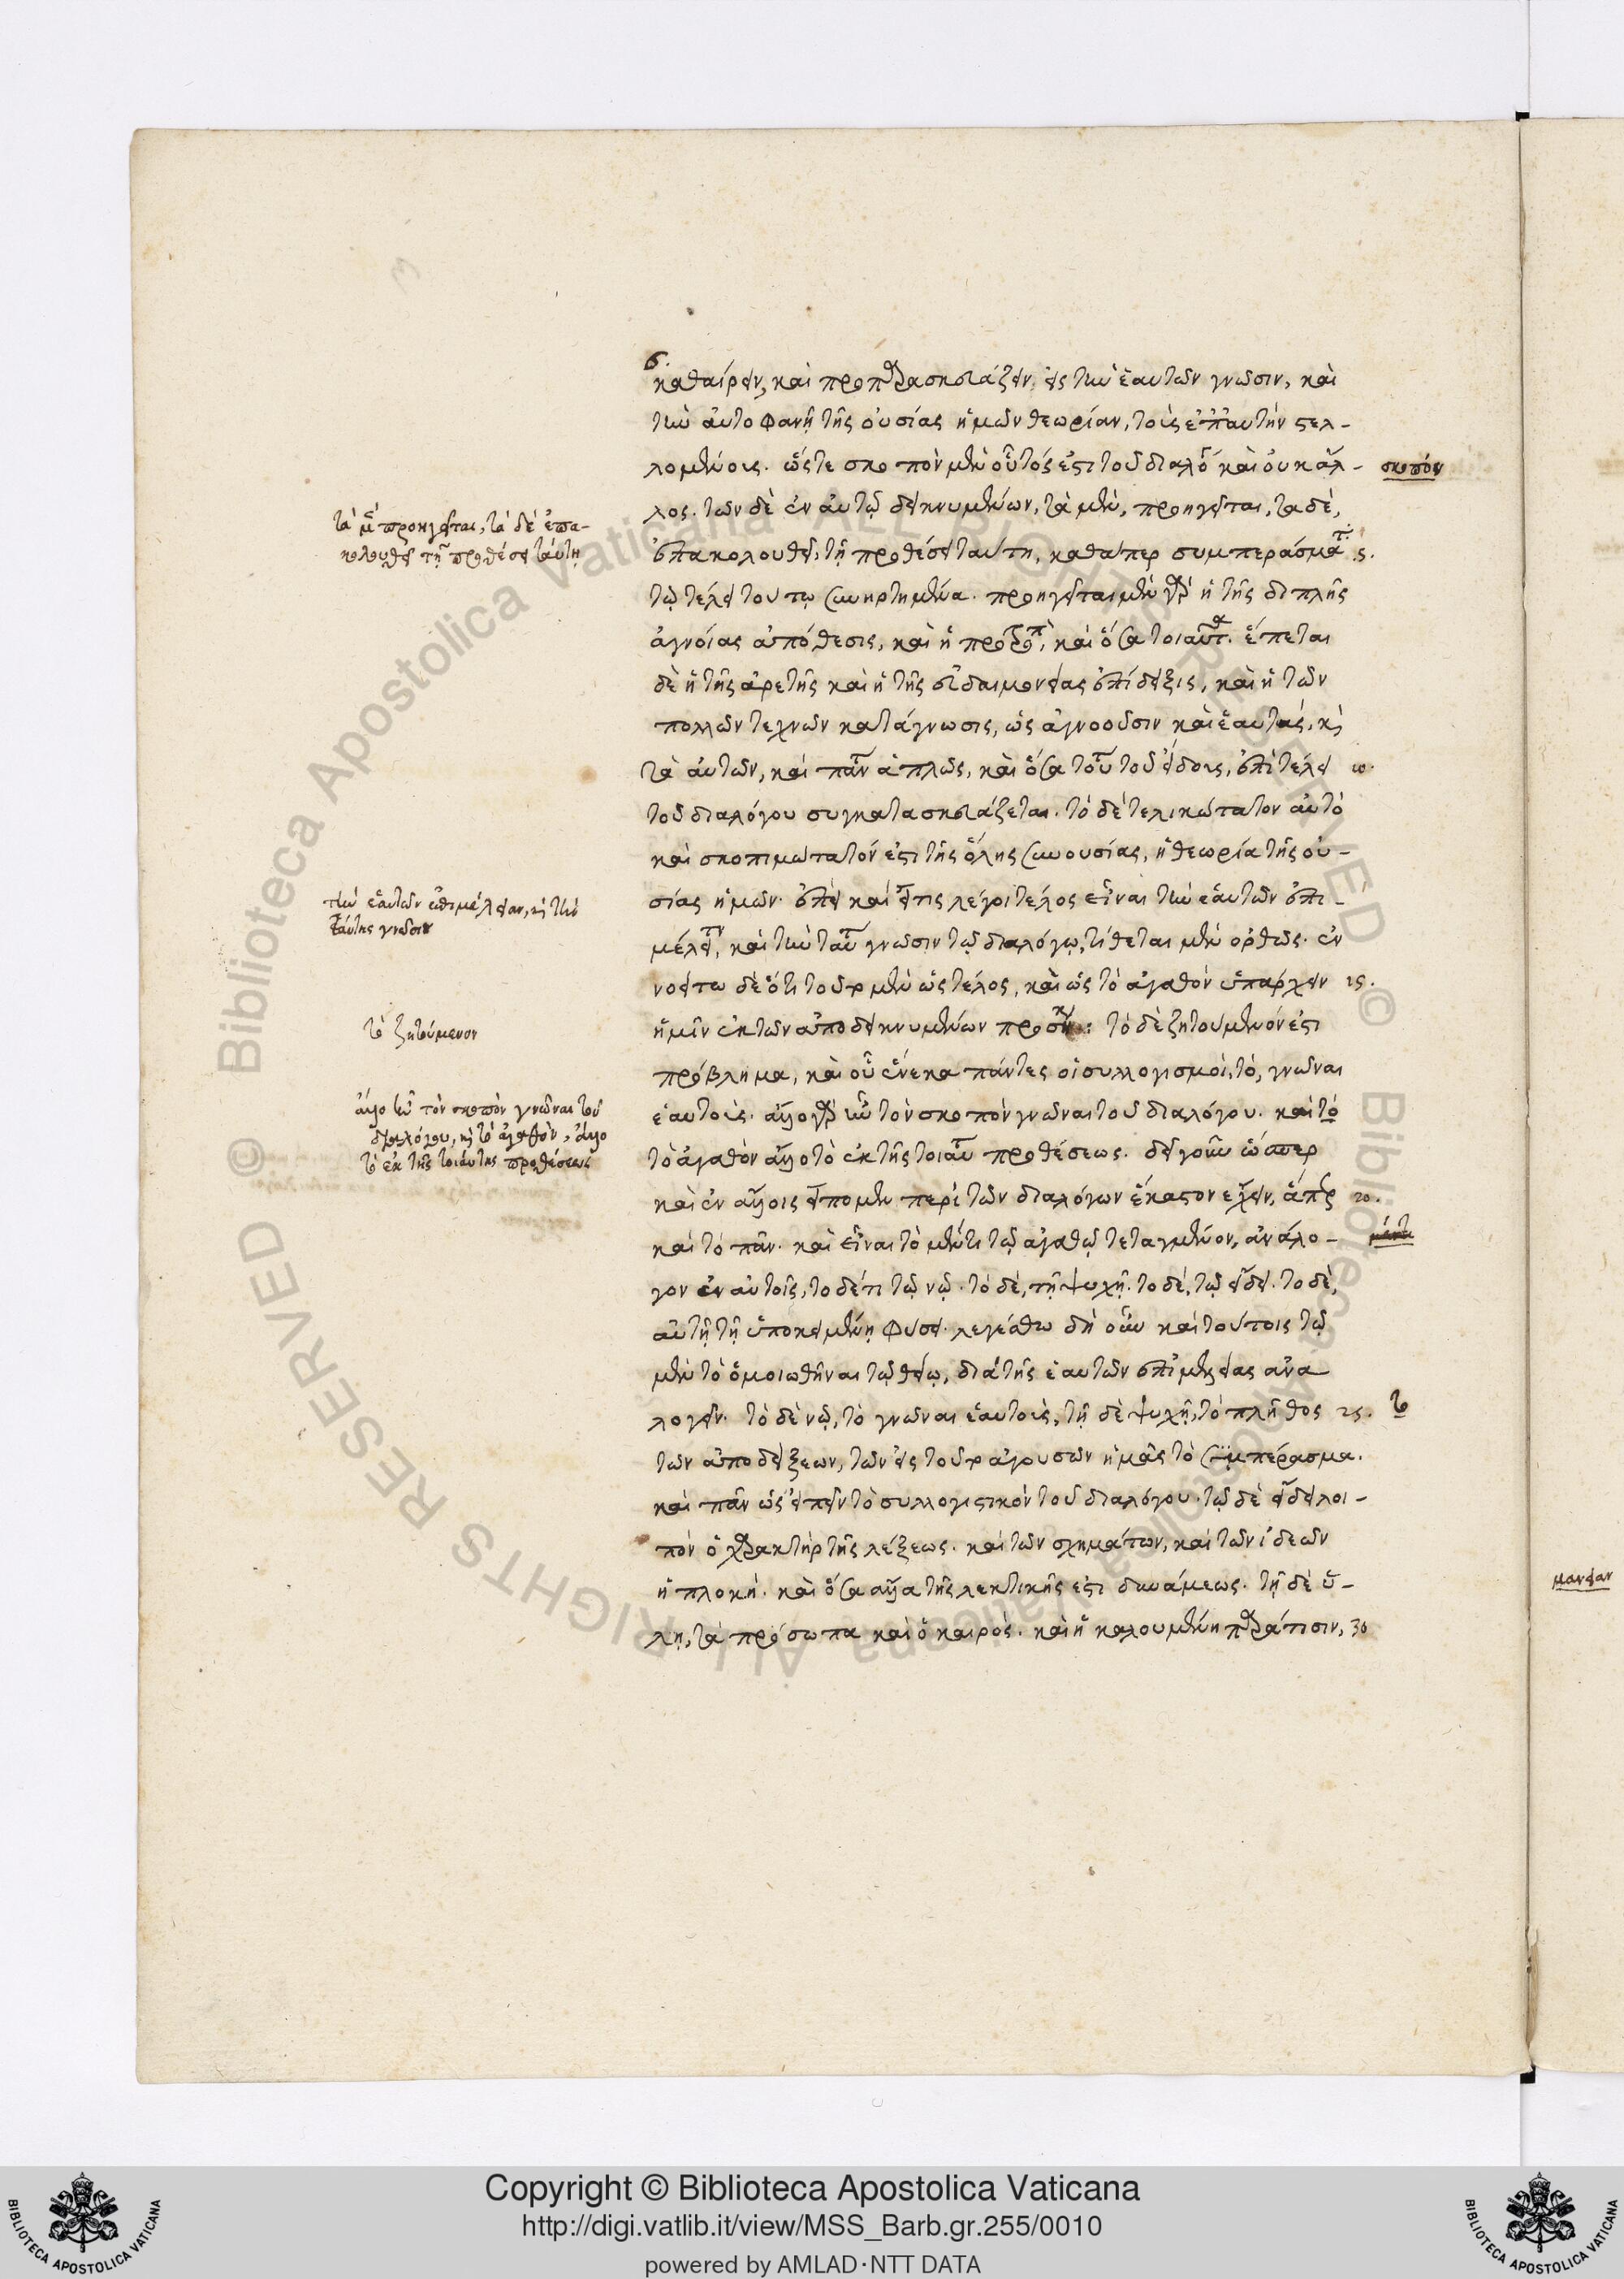 6.
καθαίρειν, καὶ προπαρασκευάζειν εἰς τὴν ἑαυτῶν γνῶσιν, καὶ
τὴν αὐτοφανῆ τῆς οὐσίας ἡμῶν θεωρίαν, τοῖς ἐπ' αὐτὴν στελ-
λομένοις. ὥστε σκοπὸν μὲν οὗτός ἐστι τοῦ διαλό καὶ οὐκ ἄλ-
σκοπόν
λος. τῶν δὲ ἐν αὐτῷ δεικνυμένων, τὰ μὲν, προηγεῖται, τὰ δὲ,
τὰ μὲν προηγεῖται, τὰ δὲ ἐπα-
κολουθεῖ τῇ προθέσει ταύτῃ
ἐπακολουθεῖ, τῇ προθέσει ταύτῃ, καθάπερ συμπεράσματ 5.
τῷ τέλει τούτῳ συνηρτημένα. προηγεῖται μὲν γὰρ ἡ τῆς διπλῆς
ἀγνοίας ἀπόθεσις, καὶ ἡ προτροπὴ, καὶ ὅσα τοιαῦτα. ἕπεται
δὲ ἡ τῆς ἀρετῆς καὶ ἡ τῆς εὐδαιμονείας ἐπίδειξις, καὶ ἡ τῶν
πολλῶν τεχνῶν κατάγνωσις, ὡς ἀγνοοῦσιν καὶ ἑαυτάς, κὶ
τὰ αὐτῶν, καὶ πάντ ἁπλῶς, καὶ ὅσα τούτου τοῦ εἴδους, ἐπὶ τέλει 10.
τοῦ διαλόγου συγκατασκευάζεται. τὸ δὲ τελικώτατον αὐτὸ
καὶ σκοπιμώτατόν ἐστι τῆς ὅλης συνουσίας, ἡ θεωρία τῆς οὐ-
σίας ἡμῶν. ἐπεὶ καὶ εἴτις λέγοι τέλος εἶναι τὴν ἑαυτῶν ἐπι-
τὴν ἑαυτῶν ἐπιμέλειαν, κὶ τὴν
ταύτης γνῶσιν
μέλειαν, καὶ τὴν ταύτης γνῶσιν τῷ διαλόγῳ, τίθεται μὲν ὀρθῶς. ἐν
νοείτω δὲ ὅτι τοῦτο μὲν ὡς τέλος, καὶ ὡς τὸ ἀγαθὸν ὑπάρχειν 15.
ἡμῖν ἐκ τῶν ἀποδεικνυμένων : τὸ δὲ ζητούμενόν ἐστι
τὸ ζητούμενον
πρόβλημα, καὶ οὗ ἕνεκα πάντες οἱ συλλογισμοὶ, τὸ, γνῶναι
ἑαυτούς. ἄλλο γὰρ ἦν τὸν σκοπὸν γνῶναι τοῦ διαλόγου. καὶ τὸ
ἄλλο ἦν τὸν σκοπὸν γνῶναι τοῦ
διαλόγου, κὶ τὸ ἀγαθὸν, ἄλλο
τὸ ἐκ τῆς τοιαύτης προθέσεως
τὸ ἀγαθὸν ἄλλο τὸ ἐκ τῆς τοιαύτης προθέσεως. δεῖ γοῦν ὥσπερ
καὶ ἐν ἄλλοις εἴπομεν περὶ τῶν διαλόγων ἕκαστον ἔχειν, ἅπερ 20.
καὶ τὸ πᾶν. καὶ εἶναι τὸ μέν τι τῷ ἀγαθῷ τεταγμένον, ἀνάλο-
γον ἐν αὐτοῖς, τὸ δέ τι τῷ νῷ. τὸ δὲ, τῇ ψυχῇ. τὸ δὲ, τῷ εἴδει. τὸ δὲ,
αὐτῇ τῇ ὑποκειμένῃ φύσει. λεγέσθω δὴ οὖν καὶ τούτοις τῷ
μὲν τὸ ὁμοιωθῆναι τῷ θείῳ, διὰ τῆς ἑαυτῶν ἐπιμελείας ἀνα
λογεῖν. τὸ δὲ νῷ, τὸ γνῶναι ἑαυτοὺς, τῇ δὲ ψυχῇ, τὸ πλῆθος 25. τὸ
τῶν ἀποδείξεων, τῶν εἰς τοῦτο ἀγουσῶν ἡμᾶς τὸ συμπέρασμα.
καὶ πᾶν ὡς εἰπεῖν τὸ συλλογιστικὸν τοῦ διαλόγου. τῷ δὲ εἴδει λοι-
πὸν ὁ χαρακτὴρ τῆς λέξεως. καὶ τῶν σχημάτων, καὶ τῶν ἰδεῶν
ἡ πλοκή. καὶ ὅσα ἄλλα τῆς λεκτικῆς ἐστι δυνάμεως. τῇ δὲ ὕ-
λῃ, τὰ πρόσωπα καὶ ὁ καιρὸς. καὶ ἡ καλουμένη παράτισιν, 30
μανείαν
© Biblioteca Apostolica Vaticana ALL RIGHTS RESERVED © Biblioteca Apostolica Vaticana ALL RIGHTS RESERVED
BIBLIOTECA APOSTOLICA VATICANA
Copyright © Biblioteca Apostolica Vaticana
http://digi.vatlib.it/view/MSS_Barb.gr.255/0010
powered by AMLAD·NTT DATA
BIBLIOTECA APOSTOLICA VATICANA